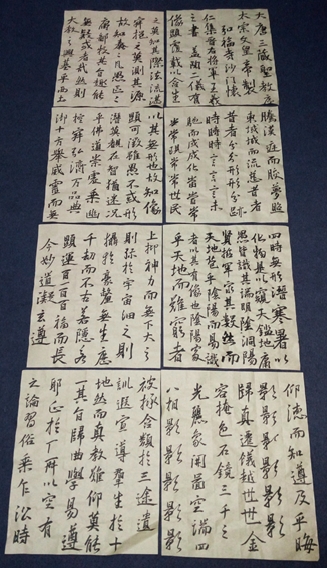 大唐三藏聖教序
太宗文皇帝製
弘福寺沙門懷
仁集晉右將軍王羲
之書蓋聞二儀有
像顯覆載以含生
之莫知其際法流湛
寂挹之莫測其源
故知蠢蠢凡愚區區
庸鄙投其旨趣能
無疑或者哉然則
大教之興基乎西土
騰漢庭而皎夢照
東域而流慈昔者
昔者分形分跡
時時時言言言未
馳而成化當當當
當常現常常世民
以其無形也故知像
顯可徵雖愚不惑形
潛莫覩在智猶迷況
乎佛道崇虛乘幽
控寂弘濟萬品典
御十方舉威靈而無
四時無形潛寒暑以
化物是以窺天鑑地庸
愚皆識其端明陰洞陽
賢哲罕窮其數然而
天地苞乎陰陽而易識
者以其有像也陰陽處
乎天地而難窮者
上抑神力而無下大之
則弥於宇宙細之則
攝於豪釐無生
千劫而不古若隱若
顯運百百百福而長
今妙道凝玄遵
仰德而知遵及乎晦
影影影影影影
歸真遷儀越世世金
容掩色不鏡三千之
光麗象開圖空端四
八相影影影影
被拯含類於三途遺
訓遐宣導羣生於十
地然而真教難仰莫能
一其旨歸曲學易遵
耶正於所以空有
之論習俗乘乍沿時